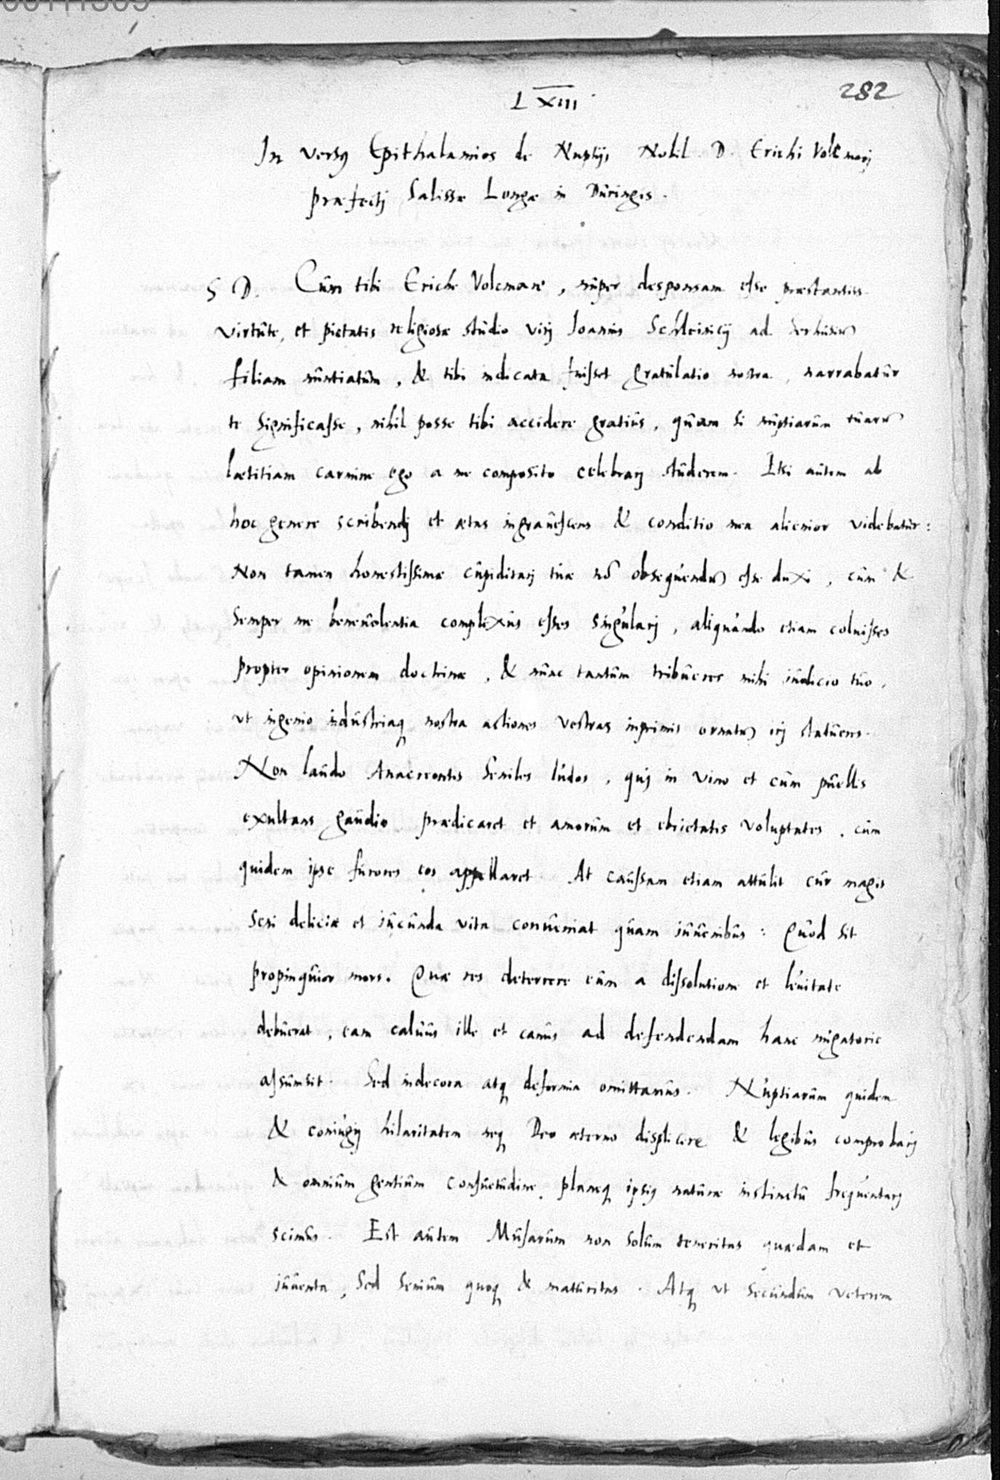 282
LXIII
In versus Epithalamios de Nuptijs Nobil D. Erichi Volcmarj
præfectj Salissæ Longæ in Düringis.
S D. Cùm tibi Eriche Volcmare, nuper desponsam esse præstantiss
virtute, et pietatis religiosæ studio virj Joannis ad
filiam nuntiatum, & tibi indicata fuisset gratulatio nostra, narrabatur
te significasse, nihil posse tibi accidere gratius, quam si nuptiarum tuarū
lætitiam carmine ego a me composito celebrarj studerem. Etsi autem ab
hoc genere scribendj et ætas ingrauescens & conditio mea alienior videbatur:
Non tamen honestissimæ cupiditatj tuæ nō obsequendū esse duxi, cùm &
semper me beneuolentia complexus esses singularj, aliquando etiam coluisses
propter opinionem doctrinæ, & nunc tantum tribueres mihi iudicio tuo,
ut ingenio industriaq nostra actiones vestras inprimis ornatū irj statueres.
Non laudo Anacreontis seniles ludos, quj in vino et cùm puellis
exultans gaudio prædicaret et amorum et ebrietatis voluptates, cùm
quidem ipse furores eos appellaret At caussam etiam attulit cur magis
seni deliciæ et iucunda vita conueniat quam iuuenibus: Quod sit
propinquior mors. Quæ res deterrere eum a dissolutione et leuitate
debuerat, eam caluus ille et canus ad defendendam hanc nugatorie
assumsit. Sed indecora atq deformia omittamus. Nuptiarum quidem
& coniugij hilaritatem neq Deo æterno displicere & legibus comprobarj
& omnium gentium consuetudine, planeq ipsius naturæ instinctu frequentarj
scimus. Est autem Musarum non solum teneritas quædam et
iuuenta, sed senium quoq & maturitas. Atq ut secundum veterem